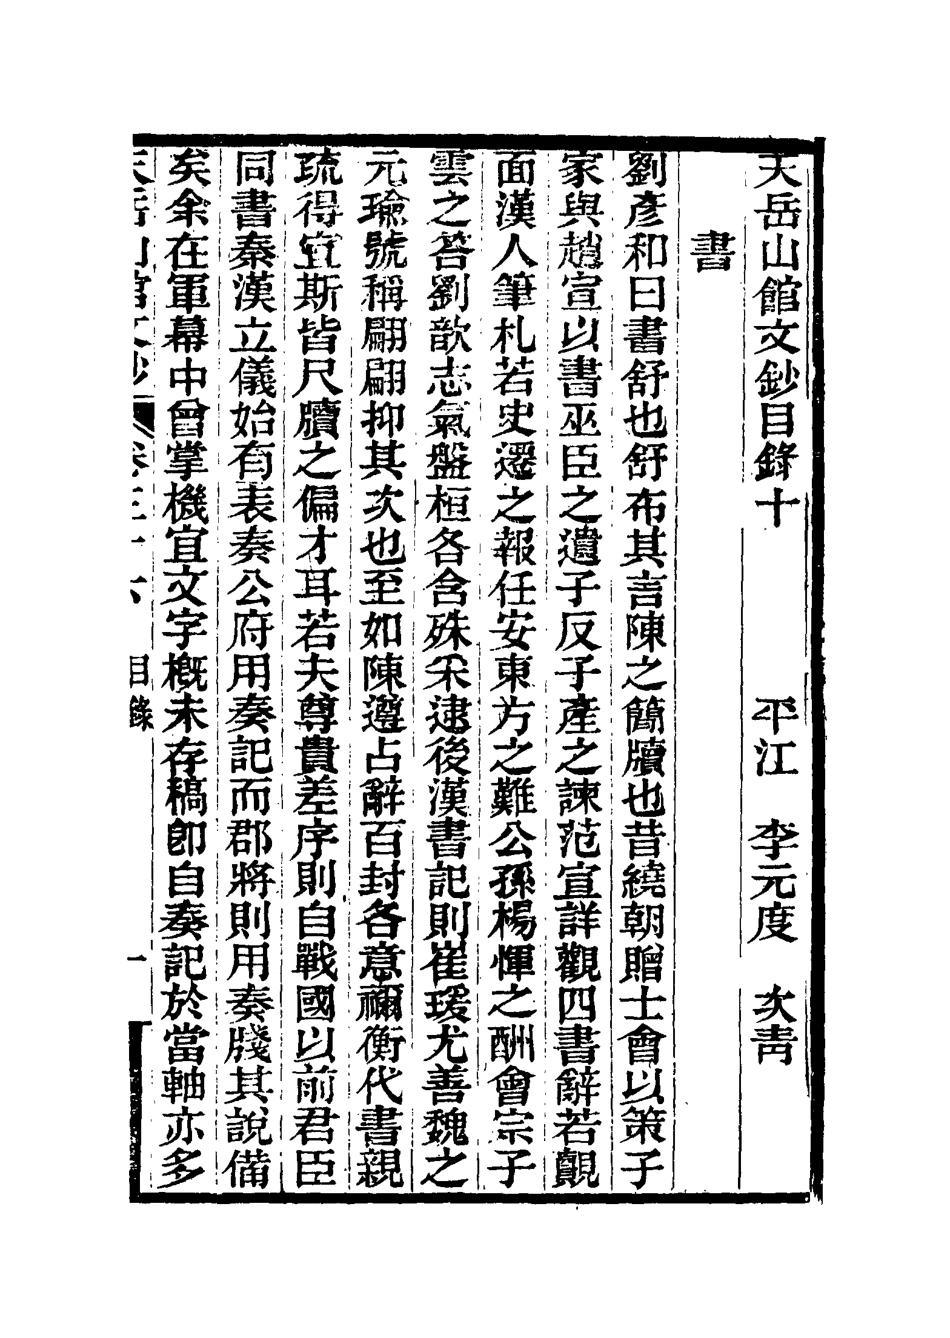 天岳山館文鈔目錄十　　　平江　李元度　次青
書
劉彥和曰書舒也舒布其言陳之簡牘也昔繞朝贈士會以策子
家與趙宣以書巫臣之遺子反子產之諫范宣詳觀四書辭若觀
面漢人筆札若史遷之報任安東方之難公孫楊惲之酬會宗子
雲之答劉歆志氣盤桓各含殊采逮後漢書記則崔瑗尤善魏之
元瑜號稱翩翩抑其次也至如陳遵占辭百封各意禰衡代書親
疏得宜斯皆尺牘之偏才耳若夫尊貴差序則自戰國以前君臣
同書秦漢立儀始有表奏公府用奏記而郡將則用奏牋其說備
矣余在軍幕中曾掌機宜文字概未存稿卽自奏記於當軸亦多
天岳山館文鈔　卷三十六　目錄　一